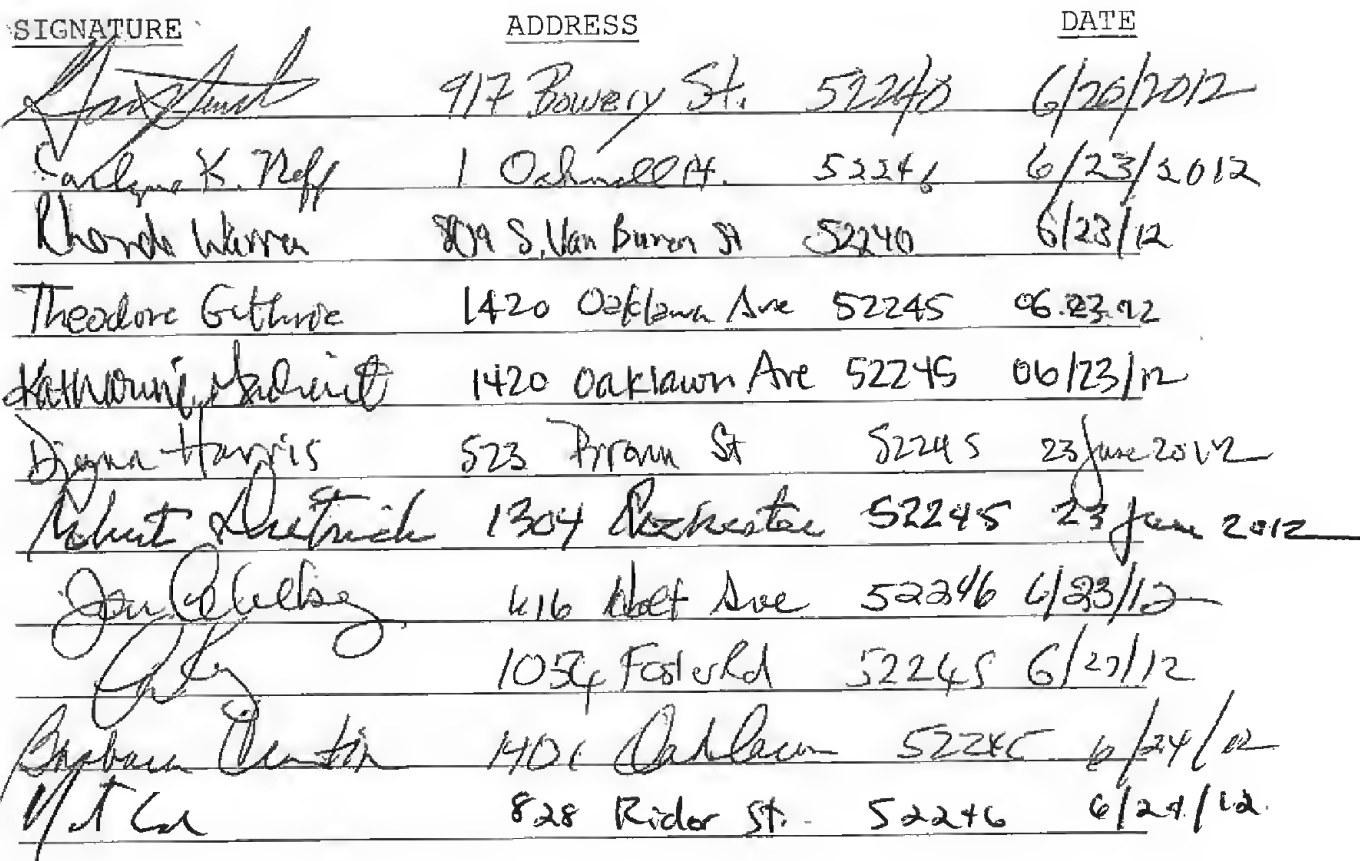 SIGNATURE ADDRESS DATE
917 Bowery St. 52240 6/20/2012
K. Neff 1 52246 6/23/2012
Rhonda Warren 809 S. Van Buren St 52240 6/23/12
Theodore Guthrie 1420 Oaklawn Ave 52245 06.23.12
Katharine 1420 Oaklawn Ave 52245 06/23/12
Harris 523 Brown St 52245 23 June 2012
Robert Dietrich 1304 Rochester 52245 23 June 2012
416 Ave 52246 6/23/12
Foster Rd 52245 6/23/12
Barbara 1401 Oaklawn 52245 6/24/12
828 Rider St. 52246 6/24/12